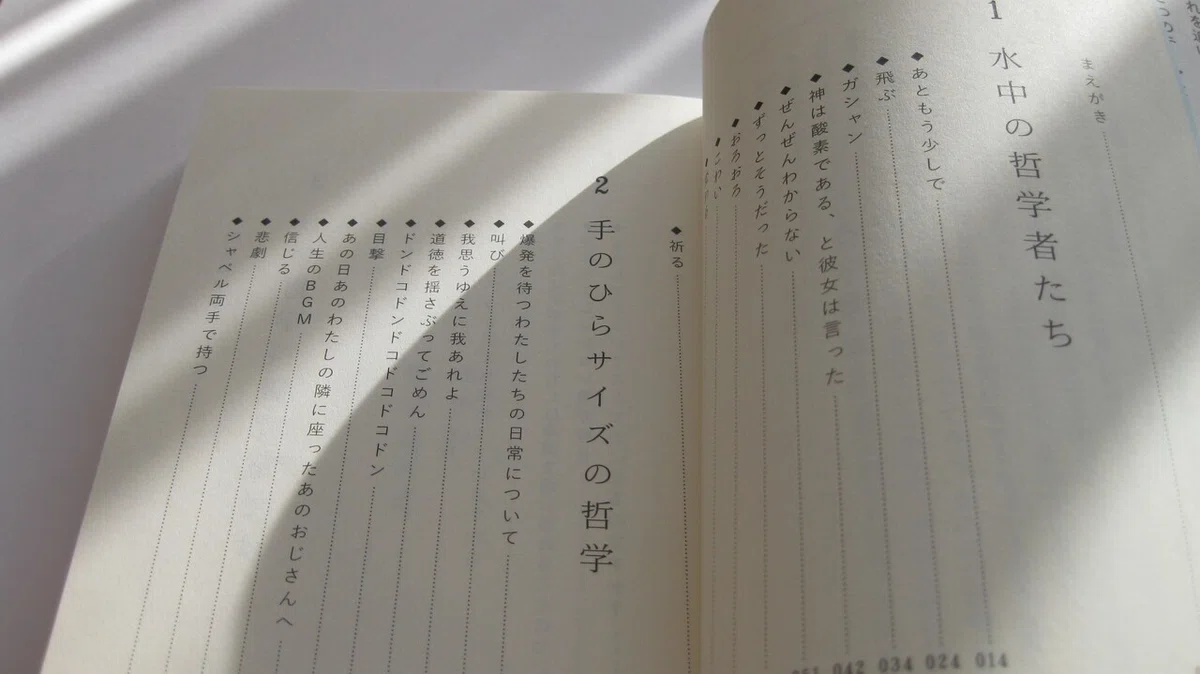 まえがき
1 水中の哲学者たち
◆あともう少しで
◆飛ぶ
◆ガシャン
◆神は酸素である、と彼女は言った
◆ぜんぜんわからない
◆ずっとそうだった
◆おろおろ
◆こわい
014
024
034
042
051
◆祈る
2 手のひらサイズの哲学
◆爆発を待つわたしたちの日常について
◆叫び
◆我思うゆえに我あれよ
◆道徳を揺さぶってごめん
◆ドンドコドンドコドコドコドン
◆目撃
◆あの日あのわたしの隣に座ったあのおじさんへ
◆人生のBGM
◆信じる
◆悲劇
◆シャベル両手で持つ